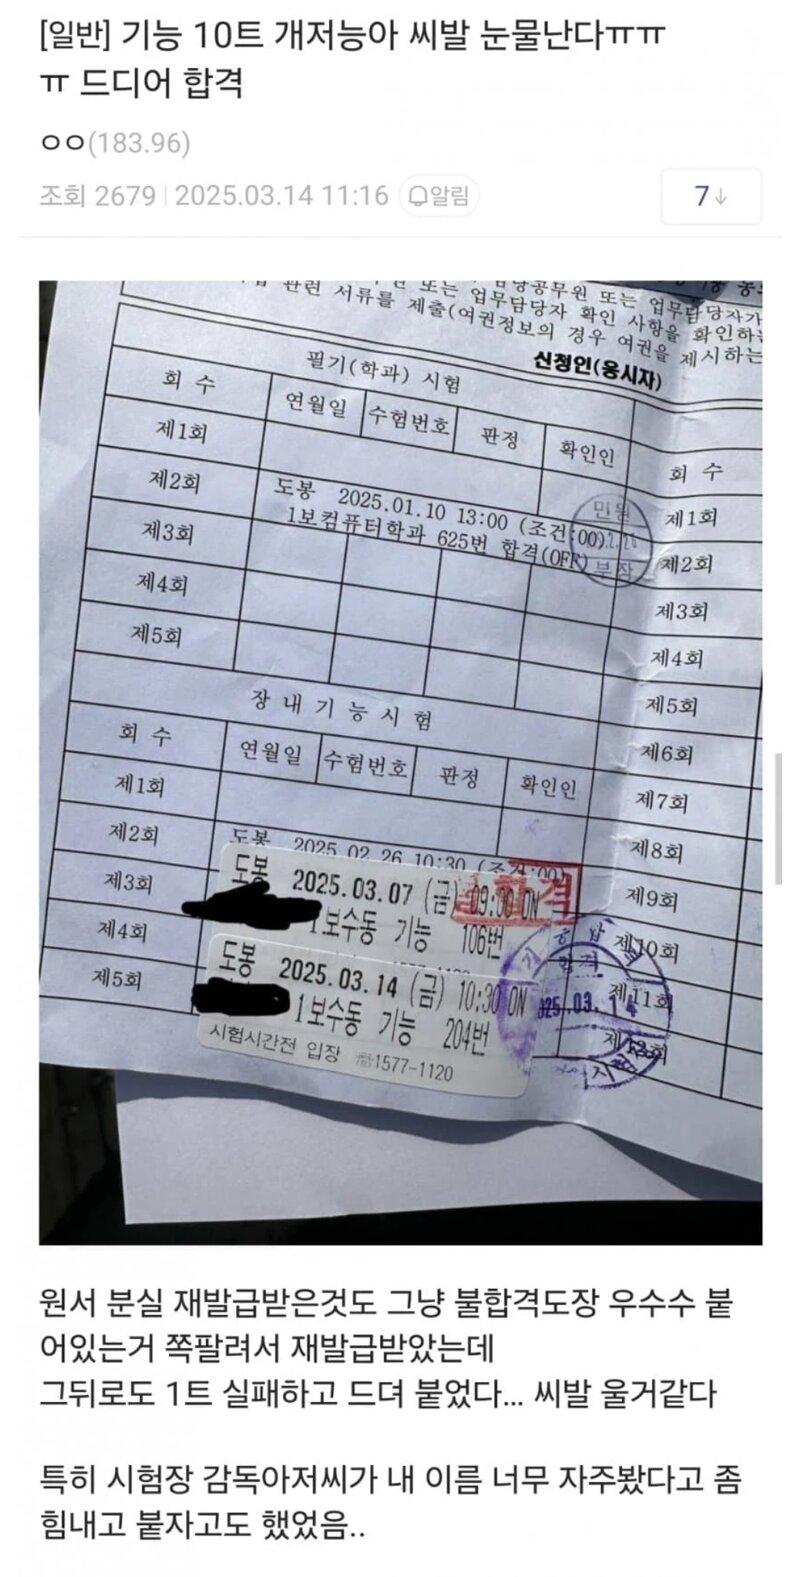 [일반] 기능 10트 개저능아 씨발 눈물난다ㅠㅠ
ㅠ 드디어 합격
ㅇㅇ(183.96)
조회 2679 2025.03.14 11:16 알림
7↓
또는 업무담당자 확인 사항을 확인하는
관련 서류를 제출(여권정보의 경우 여권을 제시하는
신청인(응시자)
필기(학과) 시험
회 수 연월일 수험번호 판정 확인인
제1회
제2회
제3회
제4회
제5회
도봉 2025.01.10 13:00 (조건:00)
1보컴퓨터학과 625번 합격(OFF)
민원
부장
장 내 기 능 시 험
회 수 연월일 수험번호 판정 확인인
제1회
제2회
제3회
제4회
제5회
도봉 2025.02.26 10:30 (조건:00)
도봉 2025.03.07 (금) 09:00 ON
1보수동 기능 106번
도봉 2025.03.14 (금) 10:30 ON
1보수동 기능 204번
시험시간전 입장 ☏1577-1120
회 수
제1회
제2회
제3회
제4회
제5회
제6회
제7회
제8회
제9회
제10회
제11회
제12회
합격
원서 분실 재발급받은것도 그냥 불합격도장 우수수 붙
어있는거 쪽팔려서 재발급받았는데
그뒤로도 1트 실패하고 드뎌 붙었다... 씨발 울거같다
특히 시험장 감독아저씨가 내 이름 너무 자주봤다고 좀
힘내고 붙자고도 했었음..